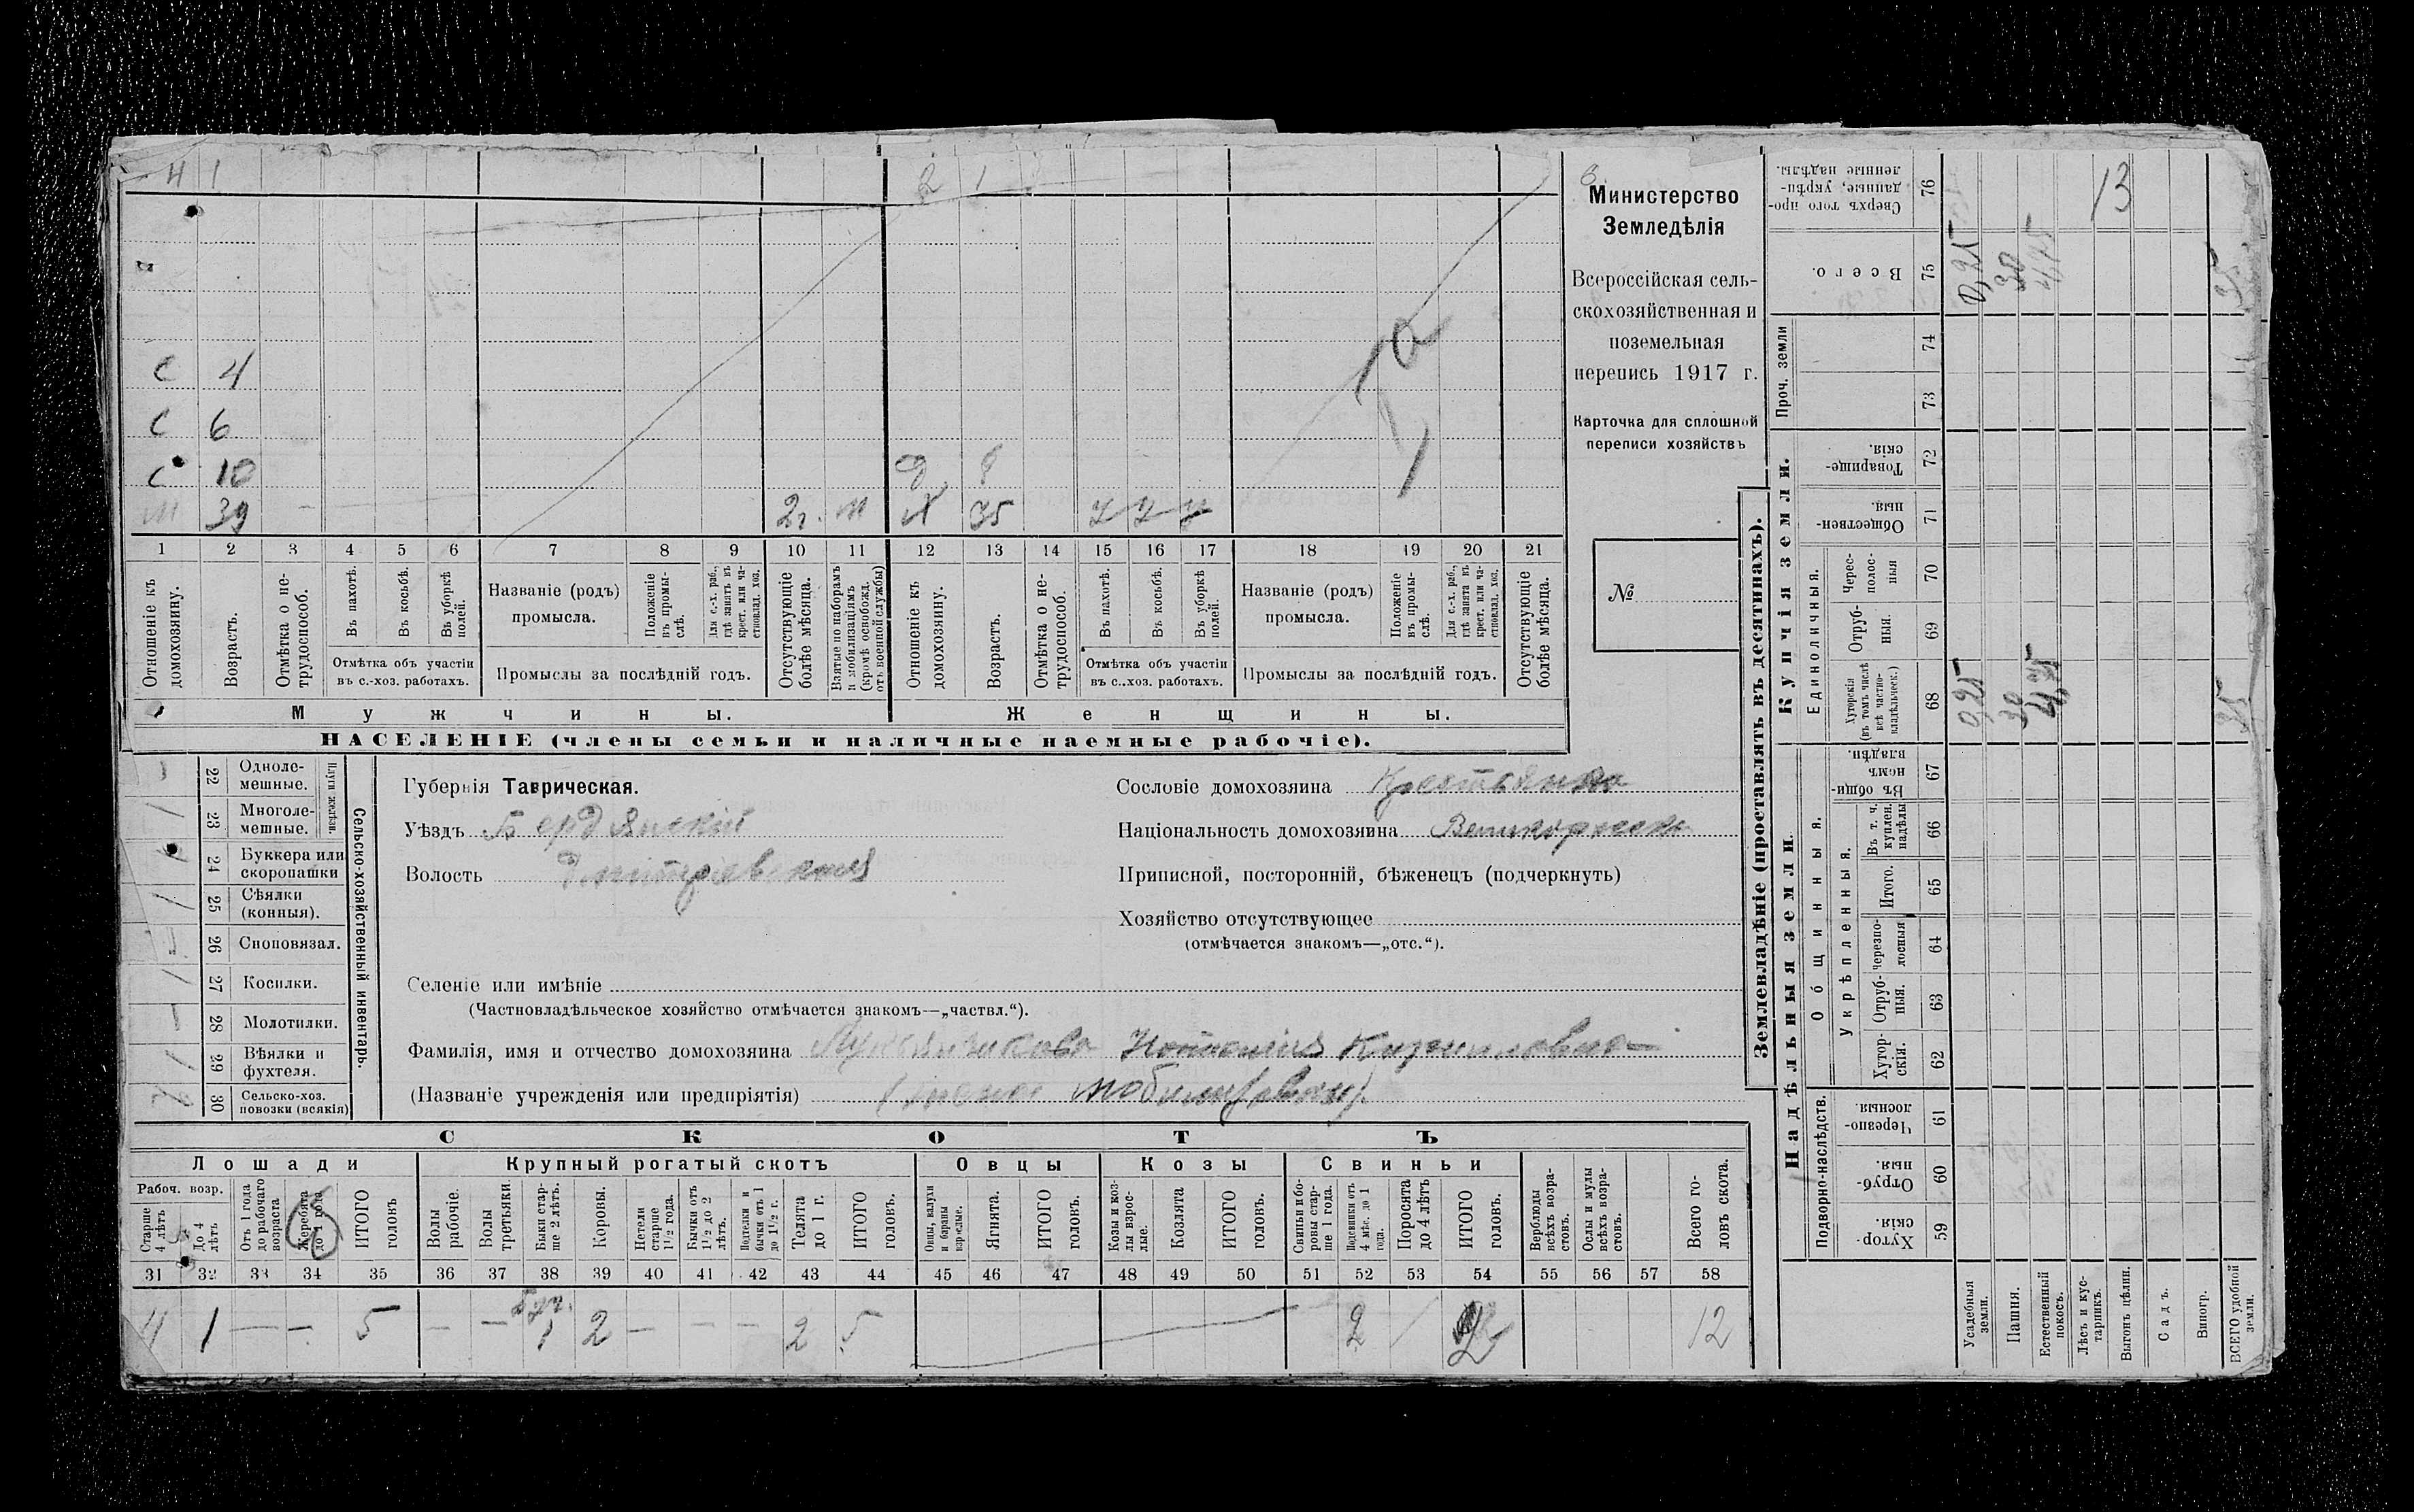 Н 1 2 1
С 4
С 6
С 10 д 8
М 39 2 г. м Х 35 У У У
1 2 3 4 5 6 7 8 9 10 11 12 13 14 15 16 17 18 19 20 21
Отношеніе къ домохозяину.
Возрастъ.
Отмѣтка о нетрудоспособ.
Въ пахотѣ.
Въ косьбѣ.
Въ уборкѣ полей.
Отмѣтка объ участіи въ с.-хоз. работахъ.
Названіе (родъ) промысла.
Положеніе въ промыслѣ.
Для с.-х. раб., гдѣ занятъ въ крест. или частновлад. хоз.
Промыслы за послѣдній годъ.
Отсутствующіе болѣе мѣсяца.
Взятые по наборамъ и мобилизаціямъ (кромѣ освобожд. отъ военной службы)
Отношеніе къ домохозяину.
Возрастъ.
Отмѣтка о нетрудоспособ.
Въ пахотѣ.
Въ косьбѣ.
Въ уборкѣ полей.
Отмѣтка объ участіи въ с.-хоз. работахъ.
Названіе (родъ) промысла.
Положеніе въ промыслѣ.
Для с.-х. раб., гдѣ занята въ крест. или частновлад. хоз.
Промыслы за послѣдній годъ.
Отсутствующіе болѣе мѣсяца.
Мужчины. Женщины.
НАСЕЛЕНІЕ (члены семьи и наличные наемные рабочіе).
Министерство
Земледѣлія
Всероссійская сель-
скохозяйственная и
поземельная
перепись 1917 г.
Карточка для сплошной
переписи хозяйствъ
№
Сельско-хозяйственный инвентарь.
Плуги желѣзн.
22 Одноле-
мешные.
23 Многоле-
мешные.
24 Буккера или
скоропашки
25 Сѣялки
(конныя).
26 Споповязал.
27 Косилки.
28 Молотилки.
29 Вѣялки и
фухтеля.
30 Сельско-хоз.
повозки (всякія)
Губернія Таврическая.
Уѣздъ Бердянскій
Волость
Сословіе домохозяина Крестьянка
Національность домохозяина Великоросс
Приписной, посторонній, бѣженецъ (подчеркнуть)
Хозяйство отсутствующее
(отмѣчается знакомъ—„отс.“).
Селеніе или имѣніе
(Частновладѣльческое хозяйство отмѣчается знакомъ—„частвл.“).
Фамилія, имя и отчество домохозяина Кирилловна
(Названіе учрежденія или предпріятія)
СКОТЪ
Лошади Крупный рогатый скотъ Овцы Козы Свиньи
Рабоч. возр.
Старше 4 лѣтъ
До 4 лѣтъ
Отъ 1 года до рабочаго возраста
Жеребята до 1 года
ИТОГО головъ
Волы рабочіе.
Волы третьяки.
Быки старше 2 лѣтъ.
Коровы.
Нетели старше 1½ года.
Бычки отъ 1½ до 2 лѣтъ.
Подтелки и бычки отъ 1 до 1½ г.
Телята до 1 г.
ИТОГО головъ.
Овцы, валухи и бараны взрослые.
Ягнята.
ИТОГО головъ.
Козы и козлы взрослые.
Козлята
ИТОГО головъ.
Свиньи и боровы старше 1 года.
Подсвинки отъ 4 мѣс. до 1 года.
Поросята до 4 лѣтъ
ИТОГО головъ.
Верблюды всѣхъ возрастовъ.
Ослы и мулы всѣхъ возрастовъ.
Всего головъ скота.
31 32 33 34 35 36 37 38 39 40 41 42 43 44 45 46 47 48 49 50 51 52 53 54 55 56 57 58
4 1 — — 5 — — 1 2 — — — 2 5 2 2 12
Землевладѣніе (проставлять въ десятинахъ).
Надѣльныя земли. Купчія земли. Проч. земли
Подворно-наслѣдств. Общинныя. Укрѣпленныя. Единоличныя.
59 Хуторскія.
60 Отрубныя.
61 Черезполосныя.
62 Хуторскія.
63 Отрубныя.
64 Черезполосныя
65 Итого.
66 Въ т. ч. куплен. надѣлы
67 Въ общинномъ владѣн.
68 Хуторскія (въ томъ числѣ всѣ частновладѣльческ.)
69 Отрубныя.
70 Чересполосныя
71 Общественныя.
72 Товарищескія.
73
74
75 Всего.
76 Сверхъ того проданные, укрѣпленные надѣлы.
Усадебныя земли. 0,25 0,25
Пашня. 30 30
Естественный покосъ. 4,75 4,75
Лѣсъ и кустарникъ.
Выгонъ цѣлин. 13
Садъ.
Виногр.
ВСЕГО удобной земли. 35 35